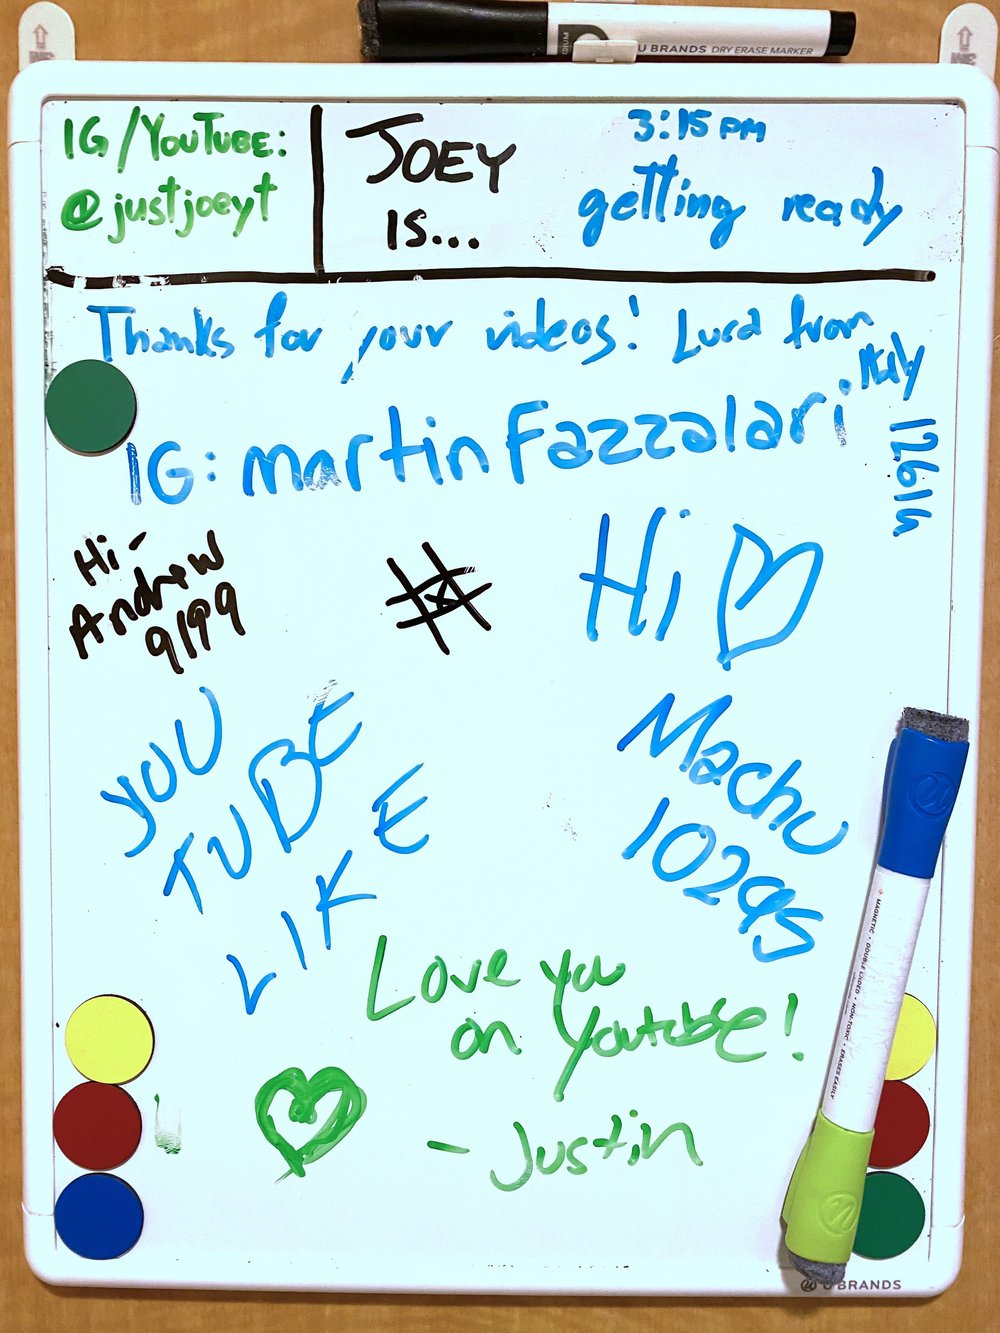 U BRANDS DRY ERASE MARKER
IG/YouTube:
@justjoeyt
JOEY
IS...
3:15 PM
getting ready
Thanks for your videos! Luca from
Italy
12614
IG: martinfazzalari
Hi-
Andrew
9199
#
x
Hi
YOU
TUBE
LIKE
Machu
10295
Love you
on Youtube!
- Justin
MAGNETIC • DOUBLE ENDED • NON-TOXIC • ERASES EASILY
U BRANDS